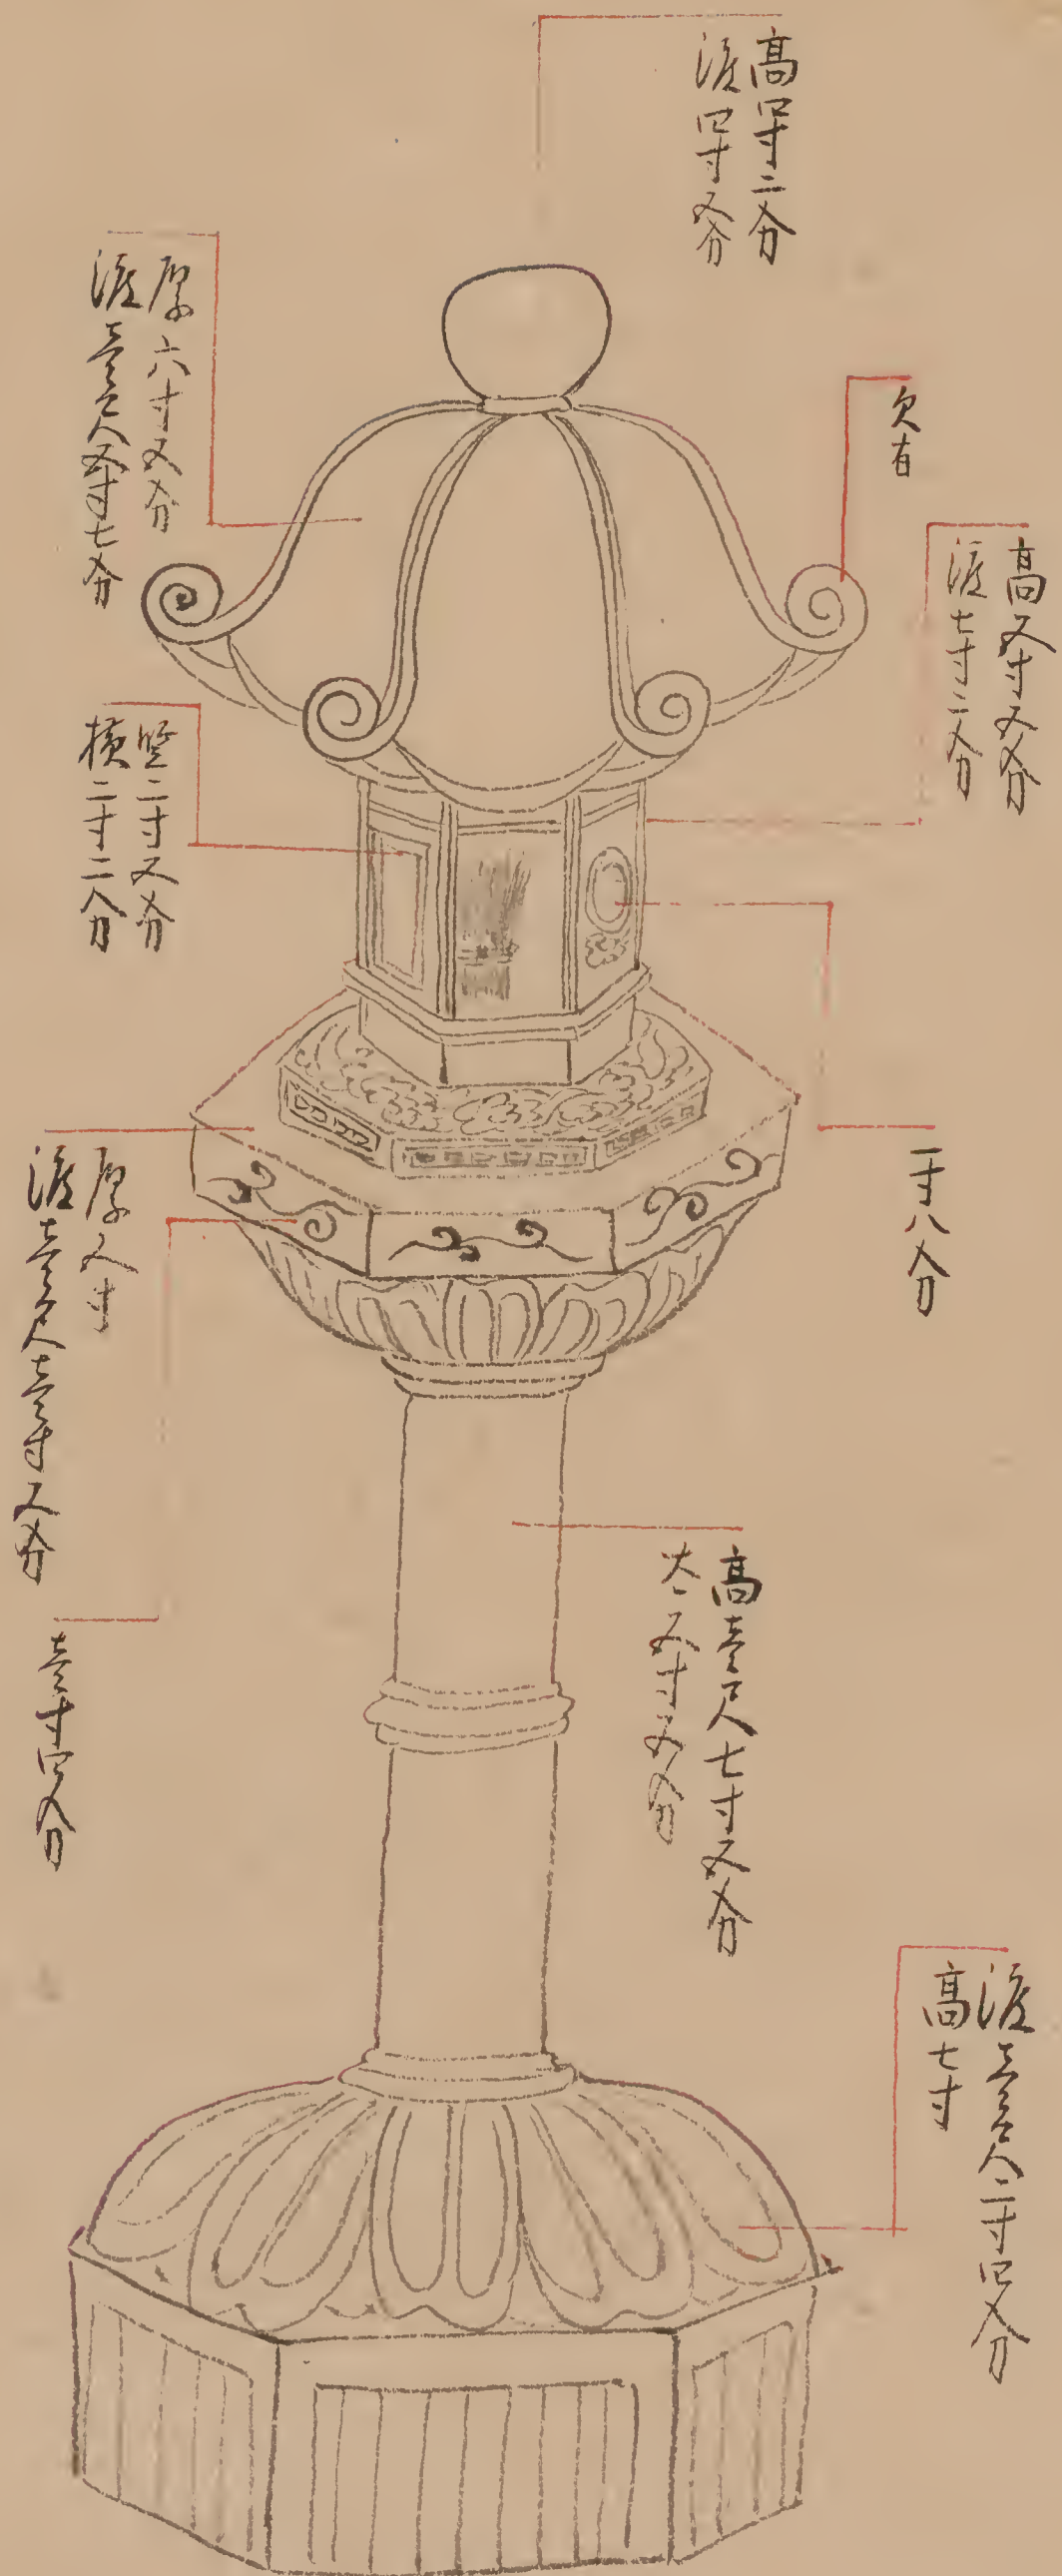 高四寸二分
渡四寸五分
欠有
厚六寸五分
渡壱尺五寸七分
高五寸五分
渡七寸二分
竪二寸五分
横二寸二分
一寸八分
厚五寸
渡壱尺壱寸五分
壱寸四分
高壱尺七寸五分
大サ五寸五分
渡壱尺二寸四分
高七寸